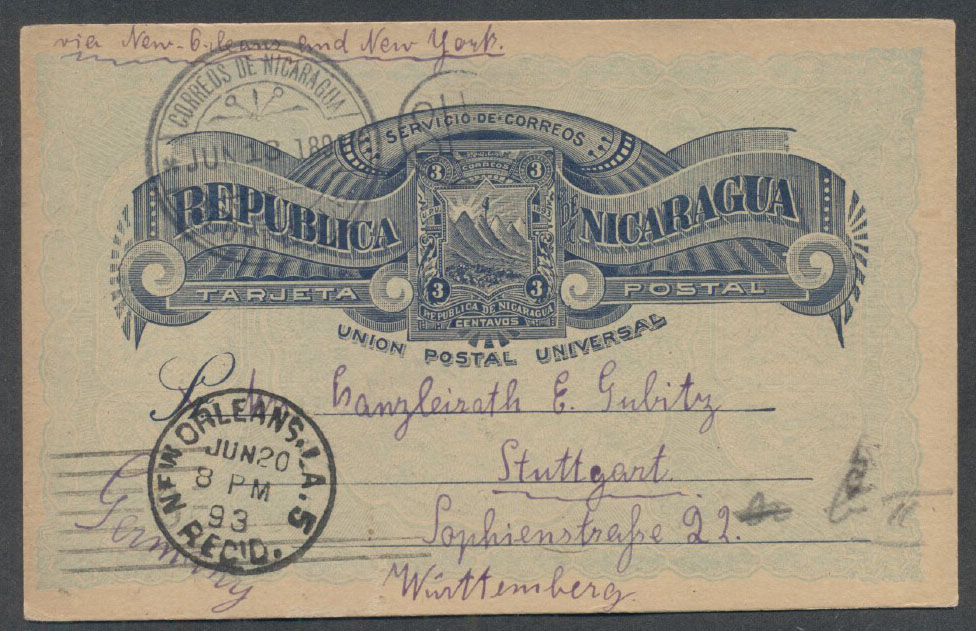 via New-Orleans and New York.
CORREOS DE NICARAGUA
JUN 13 189
SERVICIO DE CORREOS
3 CORREOS 3
REPUBLICA DE NICARAGUA
3 3
REPUBLICA DE NICARAGUA
CENTAVOS
TARJETA POSTAL
UNION POSTAL UNIVERSAL
Kanzleirath E. Gubitz
Stuttgart.
Sophienstraße 22.
Württemberg.
Germany
NEW ORLEANS, LA. 5
JUN 20
8 PM
93
REC'D.